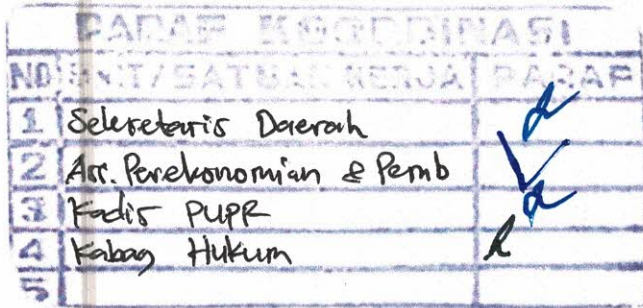 PARAF KOORDINASI
NO UNIT/SATUAN KERJA PARAF
1 Sekretaris Daerah
2 Ass. Perekonomian & Pemb
3 Kadis PUPR
4 Kabag Hukum
5